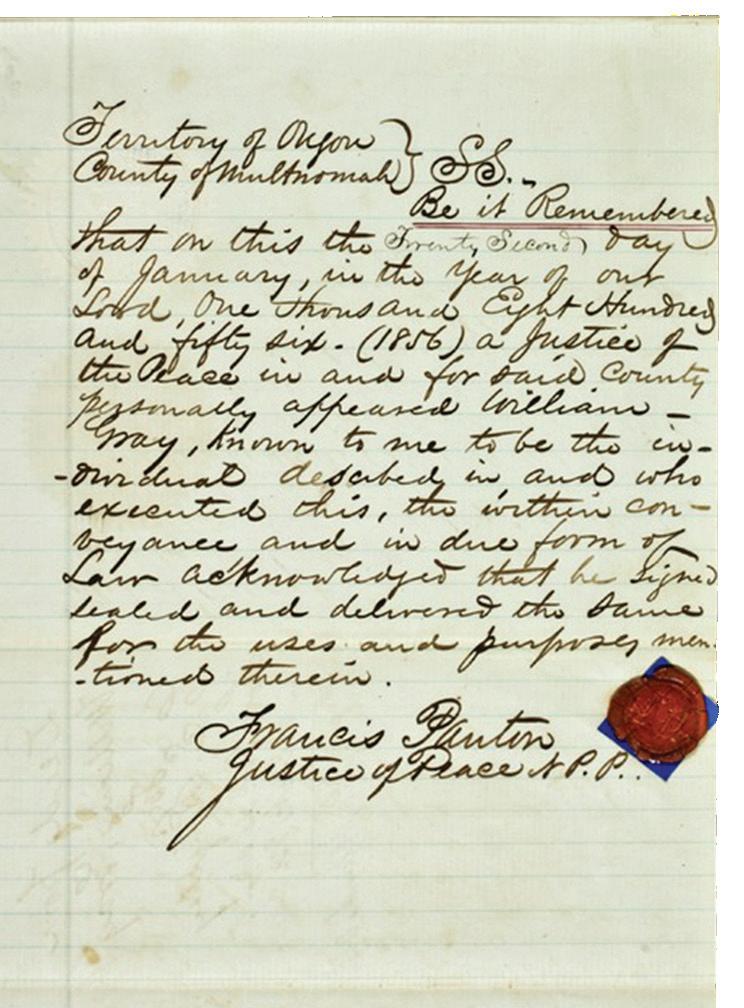 Territory of Oregon
County of Multnomah } SS.
Be it Remembered
that on this the Twenty Second day
of January, in the Year of our
Lord, One thousand Eight Hundred
and fifty six. (1856) a Justice of
the Peace in and for said County
personally appeared William –
Gray, known to me to be the in-
-dividual descibed in and who
executed this, the within con-
veyance and in due form of
Law acknowledged that he signed
sealed and delivered the same
for the uses and purposes men-
-tioned therein.
Francis Panton
Justice of Peace N.P.P.